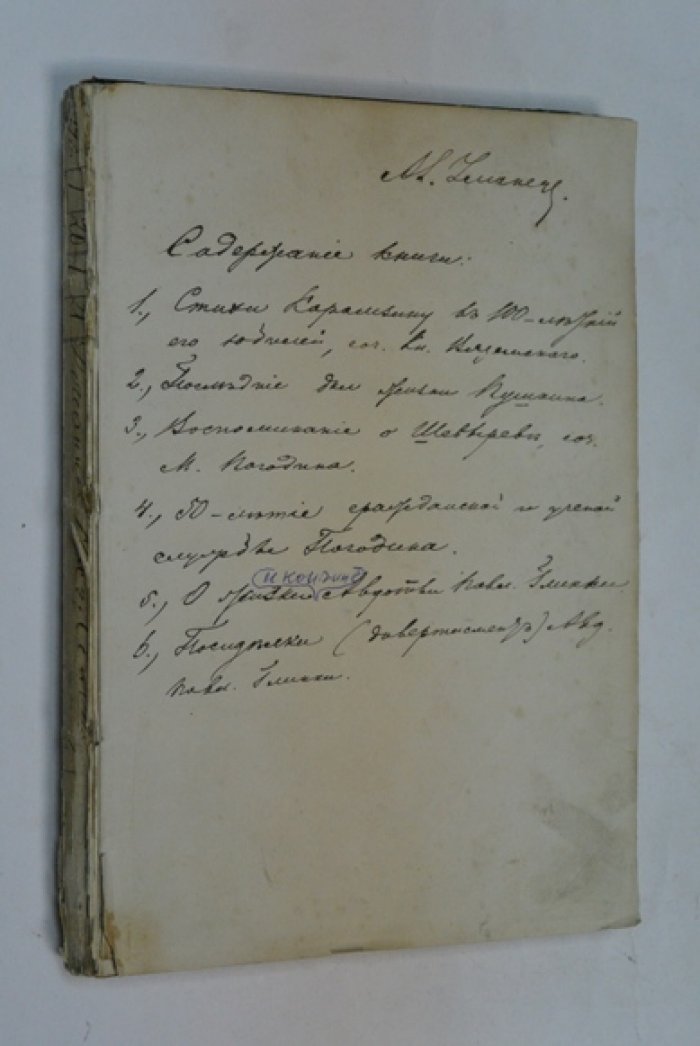 Содержаніе книги:
1., Стихи Карамзину въ 100-лѣтній
его юбилей, соч. Кн. Вяземскаго.
2., Послѣдніе дни жизни Пушкина.
3., Воспоминаніе о Шевыревѣ, соч.
М. Погодина.
4., 50-лѣтіе гражданской и ученой
службы Погодина.
и кончинѣ
5., О жизни Авдотьи Павл. Глинки.
6., Посидѣлки (дивертисментъ) Авд.
Павл. Глинки.